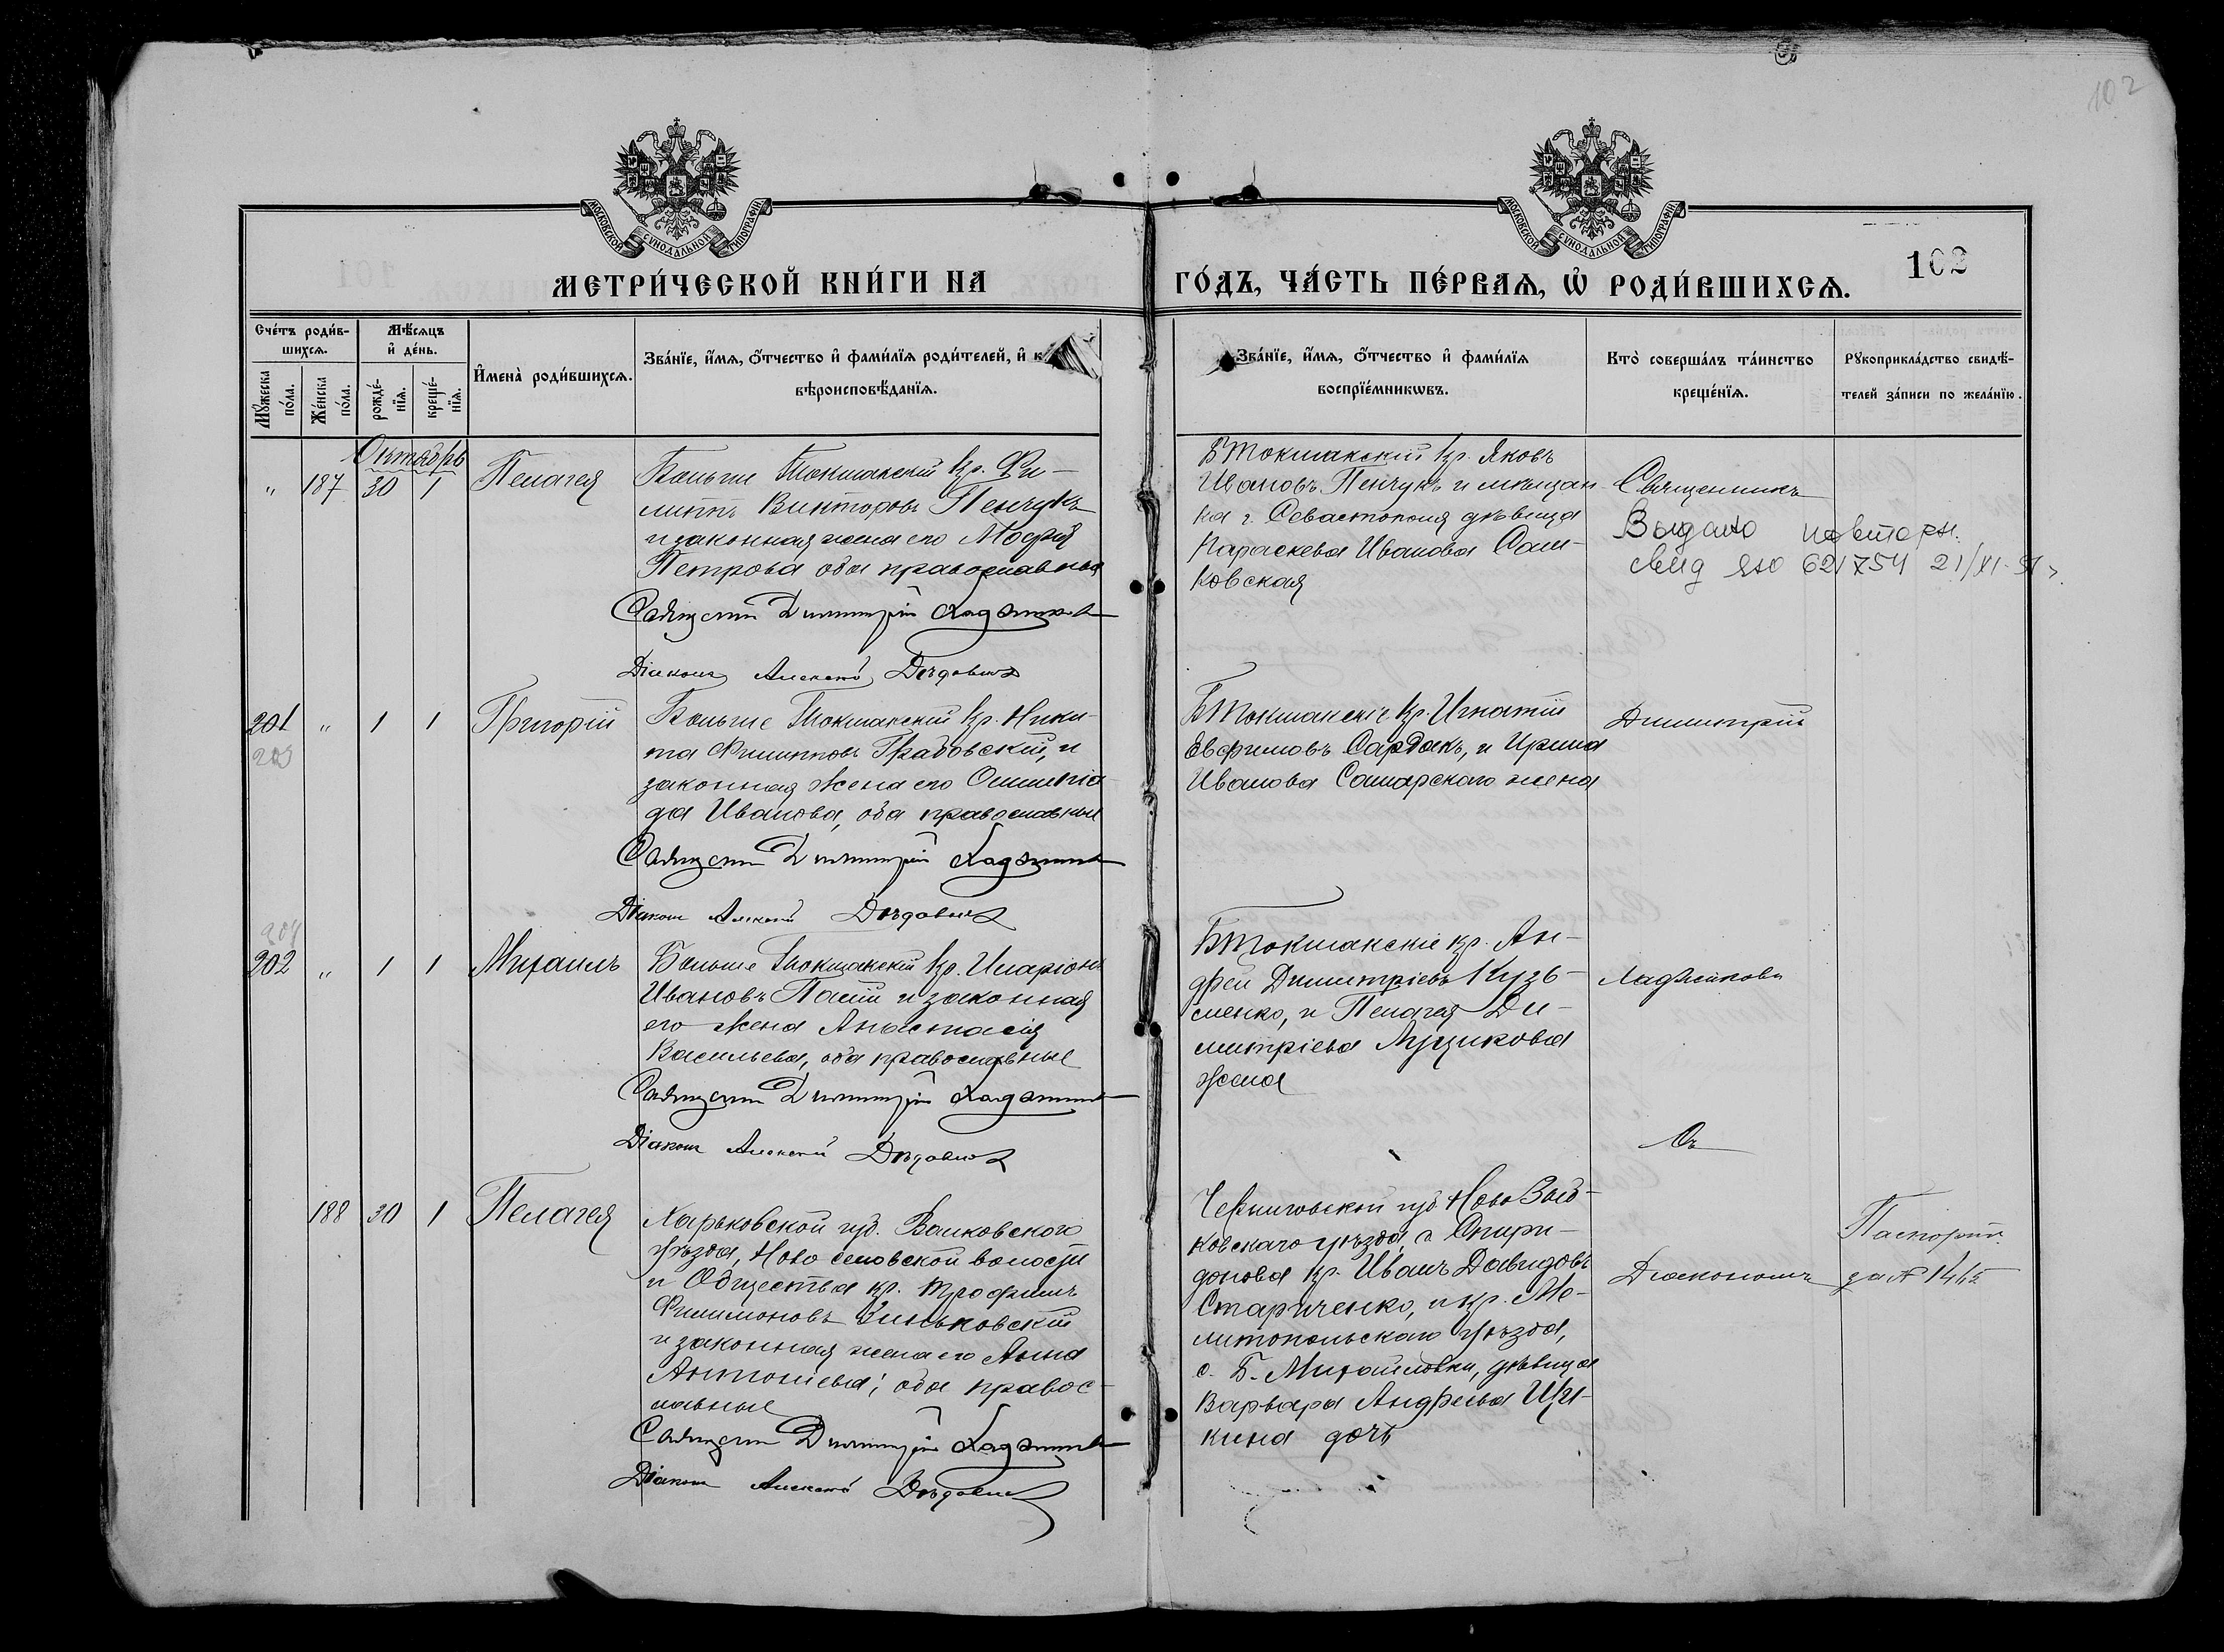 102
МОСКОВСКОЙ СУНОДАЛЬНОЙ ТИПОГРАФІИ
МОСКОВСКОЙ СУНОДАЛЬНОЙ ТИПОГРАФІИ
МЕТРИ́ЧЕСКОЙ КНИ́ГИ НА
ГО́ДЪ, ЧА́СТЬ ПЕ́РВАѦ, Ѡ҆ РОДИ́ВШИХСѦ.
102
Сче́тъ роди́в-
шихсѧ.
Мѣ́сѧцъ
и҆ де́нь.
Мꙋ́жеска
по́ла.
Же́нска
по́ла.
рожде́-
нїѧ.
креще́-
нїѧ.
И҆мена̀ роди́вшихсѧ.
Зва́нїе, и҆́мѧ, ѻ҆́тчество и҆ фами́лїѧ роди́телей, и҆ к
вѣроисповѣ́данїѧ.
Зва́нїе, и҆́мѧ, ѻ҆́тчество и҆ фами́лїѧ
воспрїе́мникѡвъ.
Кто̀ соверша́лъ та́инство
креще́нїѧ.
Рꙋкоприкла́дство свидѣ́-
телей за́писи по жела́нїю.
Октябрь
„ 187 30 1 Пелагея
Больше Токмакскій кр. Фи-
липпъ Викторовъ Пенчукъ
и законная жена его Марія
Петрова оба православные
Священникъ Димитрій Ладжиковъ
Діаконъ Алексѣй
БТокмакскій кр. Яковъ
Ивановъ Пенчукъ и мѣщан
ка г. Севастополя дѣвица
Параскева Иванова Сам-
ковская
Священникъ
Выдано повторн.
свид ЯЮ 621754 21/XI-51 г.
201 „ 1 1 Григорій
203
Больше Токмакскій кр. Ники-
та Филипповъ Грабовскій, и
законная жена его Олимпіа
да Иванова, оба православные
Священникъ Димитрій Ладжиковъ
Діаконъ Алексѣй
БТокмакскіе кр. Игнатій
Евфимовъ Сардакъ, и Ирина
Иванова Самарского жена
Димитрій
204
202 „ 1 1 Михаилъ
Больше Токмакскій кр. Иларіонъ
Ивановъ Палій и законная
его жена Анастасія
Васильева, оба православные
Священникъ Димитрій Ладжиковъ
Діаконъ Алексѣй
БТокмакскіе кр. Ан-
дрей Димитріевъ Кузь-
менко, и Пелагея Ди-
митріева Луцикова
жена
Ладжиковъ
Съ
188 30 1 Пелагея
Харьковской губ. Валковского
уѣзда, Ново селовской волости
и Общества кр. Трофимъ
Филимоновъ Зиньковскій
и законная жена его Анна
Антоніева; оба правос-
лавные
Священникъ Димитрій Ладжиковъ
Діаконъ Алексѣй
Черниговской губ. Ново Зыб-
ковскаго уѣзда, с. Спири-
донова кр. Иванъ Давидовъ
Стариченко, и кр. Ме-
литопольскаго уѣзда,
с. Б. Михайловки, дѣвица
Варвара Андреева
кина дочь
Діакономъ
Паспортъ
за №